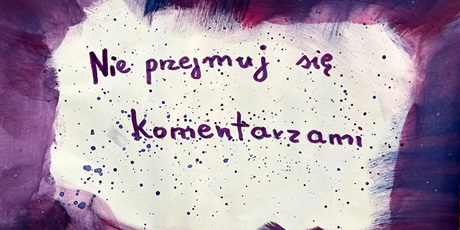 Nie przejmuj się
komentarzami